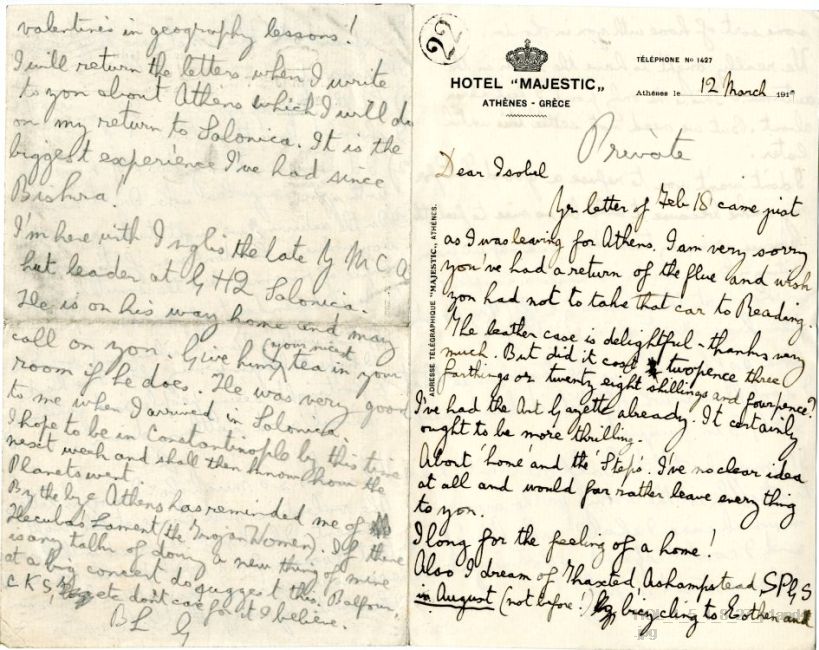 valentines in geography lessons!
I will return the letters when I write
to you about Athens which I will do
on my return to Salonica. It is the
biggest experience I've had since
Biskra!
I'm here with Inglis the late Y M C A
hut leader at G H Q Salonica.
He is on his way home and may
call on you. Give him (your nicest
tea in your
room if he does. He was very good
to me when I arrived in Salonica.
I hope to be in Constantinople by this time
next week and shall then know how the
Planets went.
By the bye Athens has reminded me of
Hecuba's Lament (the Trojan Women). If there
is any talk of doing a new thing of mine
at a big concert do suggest this. Balfour,
C K S, etc don't care for it I believe.
BL G
22
HOTEL "MAJESTIC„
ATHÈNES - GRÈCE
TÉLÉPHONE No 1427
Athènes le 12 March 1919
ADRESSE TÉLÉGRAPHIQUE "MAJESTIC„ ATHÈNES.
Private
Dear Isobel
Yr letter of Feb 18 came just
as I was leaving for Athens. I am very sorry
you've had a return of the flue and wish
you had not to take that car to Reading.
The leather case is delightful - thanks very
much. But did it cost twopence three
farthings or twenty eight shillings and fourpence?
I've had the Art Gazette already. It certainly
ought to be more thrilling.
About 'home' and the 'Steps'. I've no clear idea
at all and would far rather leave everything
to you.
I long for the feeling of a home!
Also I dream of Thaxted, Ashampstead, SPGS
in August (not before!) bicycling to Eothen and